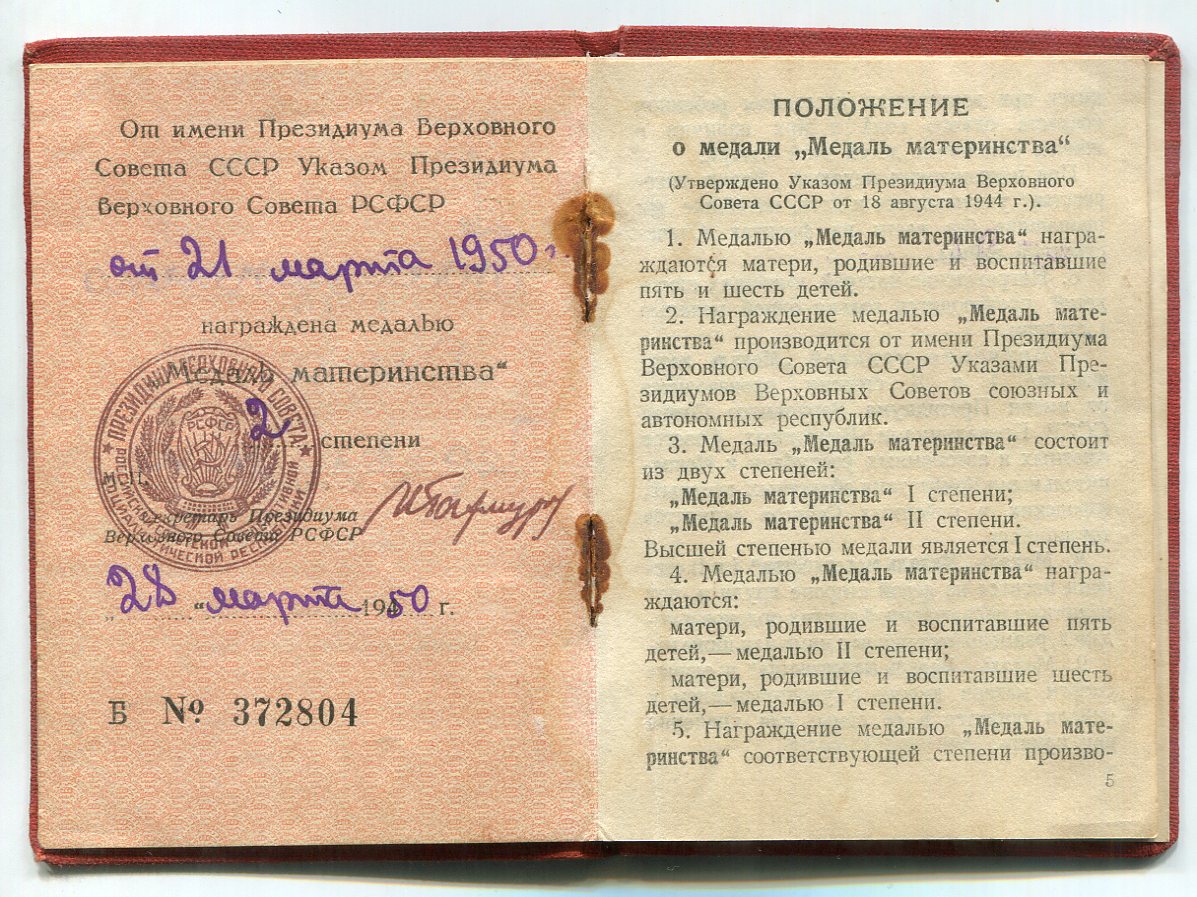 От имени Президиума Верховного
Совета СССР Указом Президиума
Верховного Совета РСФСР
от 21 марта 1950 г.
награждена медалью
„Медаль материнства“
2 степени
Секретарь Президиума
Верховного Совета РСФСР
„28“ марта 1950 г.
Б № 372804
ПРЕЗИДИУМ ВЕРХОВНОГО СОВЕТА
РСФСР
ПОЛОЖЕНИЕ
о медали „Медаль материнства“
(Утверждено Указом Президиума Верховного
Совета СССР от 18 августа 1944 г.).
1. Медалью „Медаль материнства“ награ-
ждаются матери, родившие и воспитавшие
пять и шесть детей.
2. Награждение медалью „Медаль мате-
ринства“ производится от имени Президиума
Верховного Совета СССР Указами Пре-
зидиумов Верховных Советов союзных и
автономных республик.
3. Медаль „Медаль материнства“ состоит
из двух степеней:
„Медаль материнства“ I степени;
„Медаль материнства“ II степени.
Высшей степенью медали является I степень.
4. Медалью „Медаль материнства“ награ-
ждаются:
матери, родившие и воспитавшие пять
детей,—медалью II степени;
матери, родившие и воспитавшие шесть
детей,—медалью I степени.
5. Награждение медалью „Медаль мате-
ринства“ соответствующей степени произво-
5